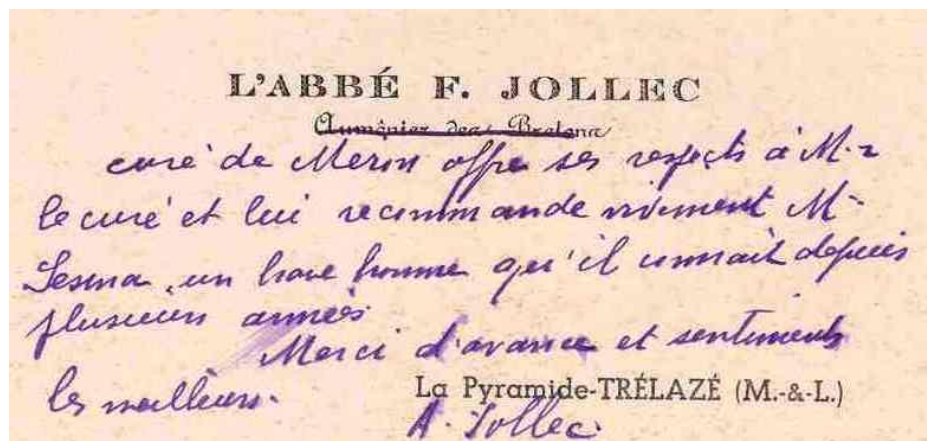 L'ABBÉ F. JOLLEC
Aumônier des Bretons
curé de Meron offre ses respects à M.r
le curé et lui recommande vivement M.
Sesma, un brave homme qu'il connait depuis
plusieurs années
Merci d'avance et sentiments
les meilleurs.
La Pyramide-TRÉLAZÉ (M.-&-L.)
A. Jollec.